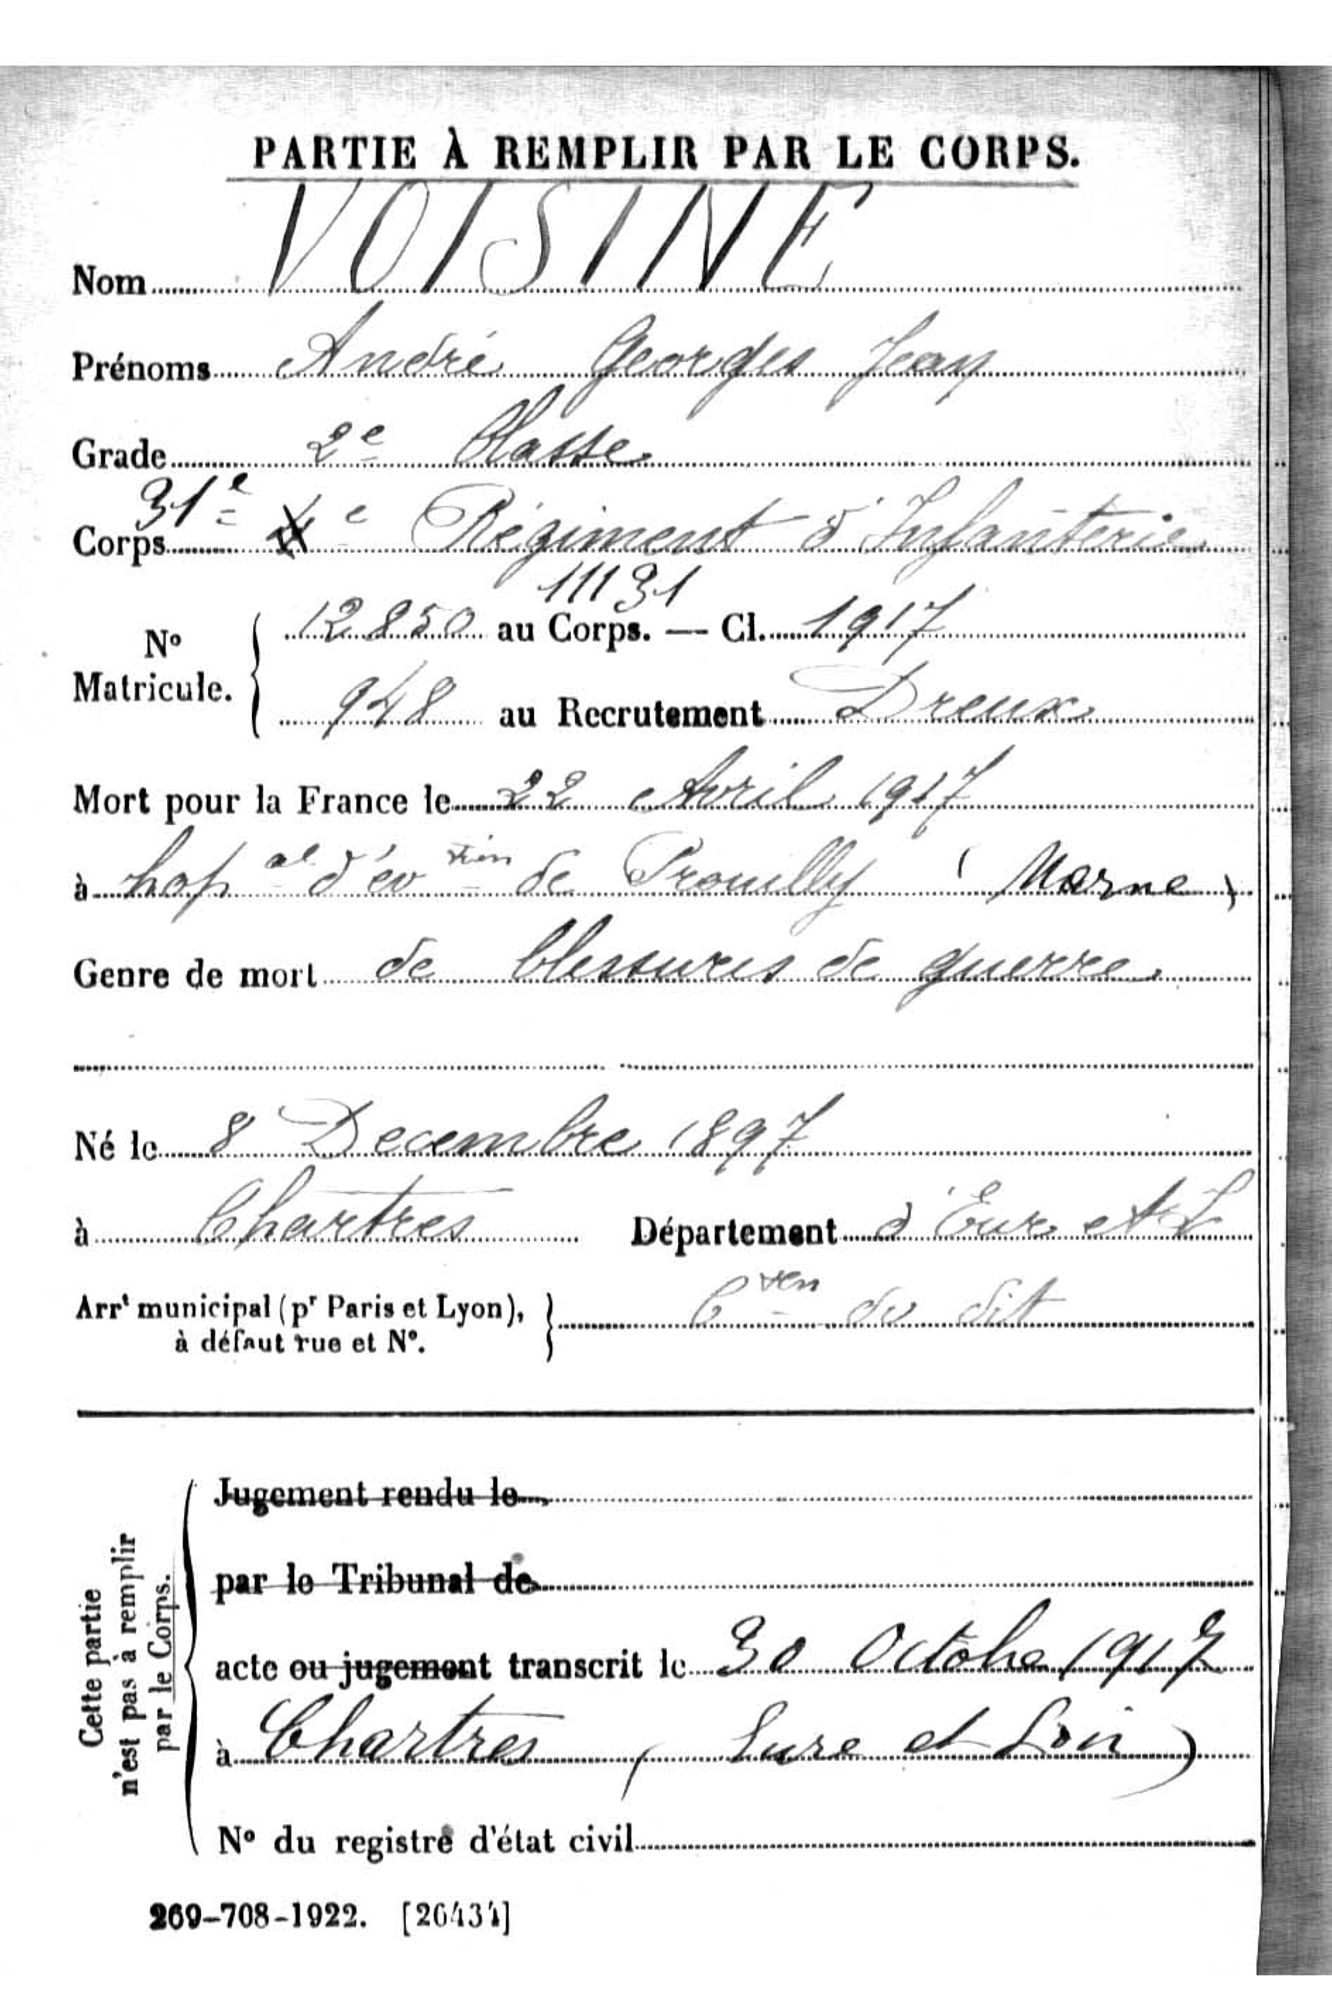 PARTIE À REMPLIR PAR LE CORPS.
Nom VOISINE
Prénoms André Georges Jean
Grade 2e Classe
31e
Corps 4e Régiment d'Infanterie
11131
No Matricule. 12850 au Corps. — Cl. 1917
948 au Recrutement Dreux
Mort pour la France le 22 Avril 1917
à hopal d'évtion de Prouilly (Marne)
Genre de mort de blessures de guerre
Né le 8 Decembre 1897
à Chartres Département d'Eure et L
Arrt municipal (pr Paris et Lyon),
à défaut rue et No.
du dit
Cette partie
n'est pas à remplir
par le Corps.
Jugement rendu le
par le Tribunal de
acte ou jugement transcrit le 30 Octobre 1917
à Chartres (Eure et Loir)
No du registre d'état civil
269-708-1922. [26434]